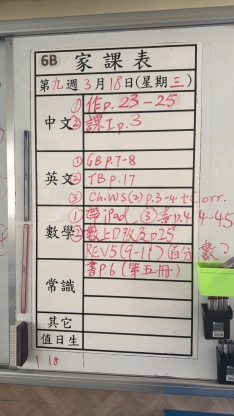 6B 家課表
第九週3月18日(星期三)
中文 ①作p.23-25
②課工p.3
英文 ①GB p.7-8
②TB p.17
③Ch.WS(2)p.3-4+Corr.
數學 ①帶iPad ③書p.44-45
②數上D改及p.25
REV5(9-11)(百分數)
常識 書p.6(第五冊)
其它
值日生
18